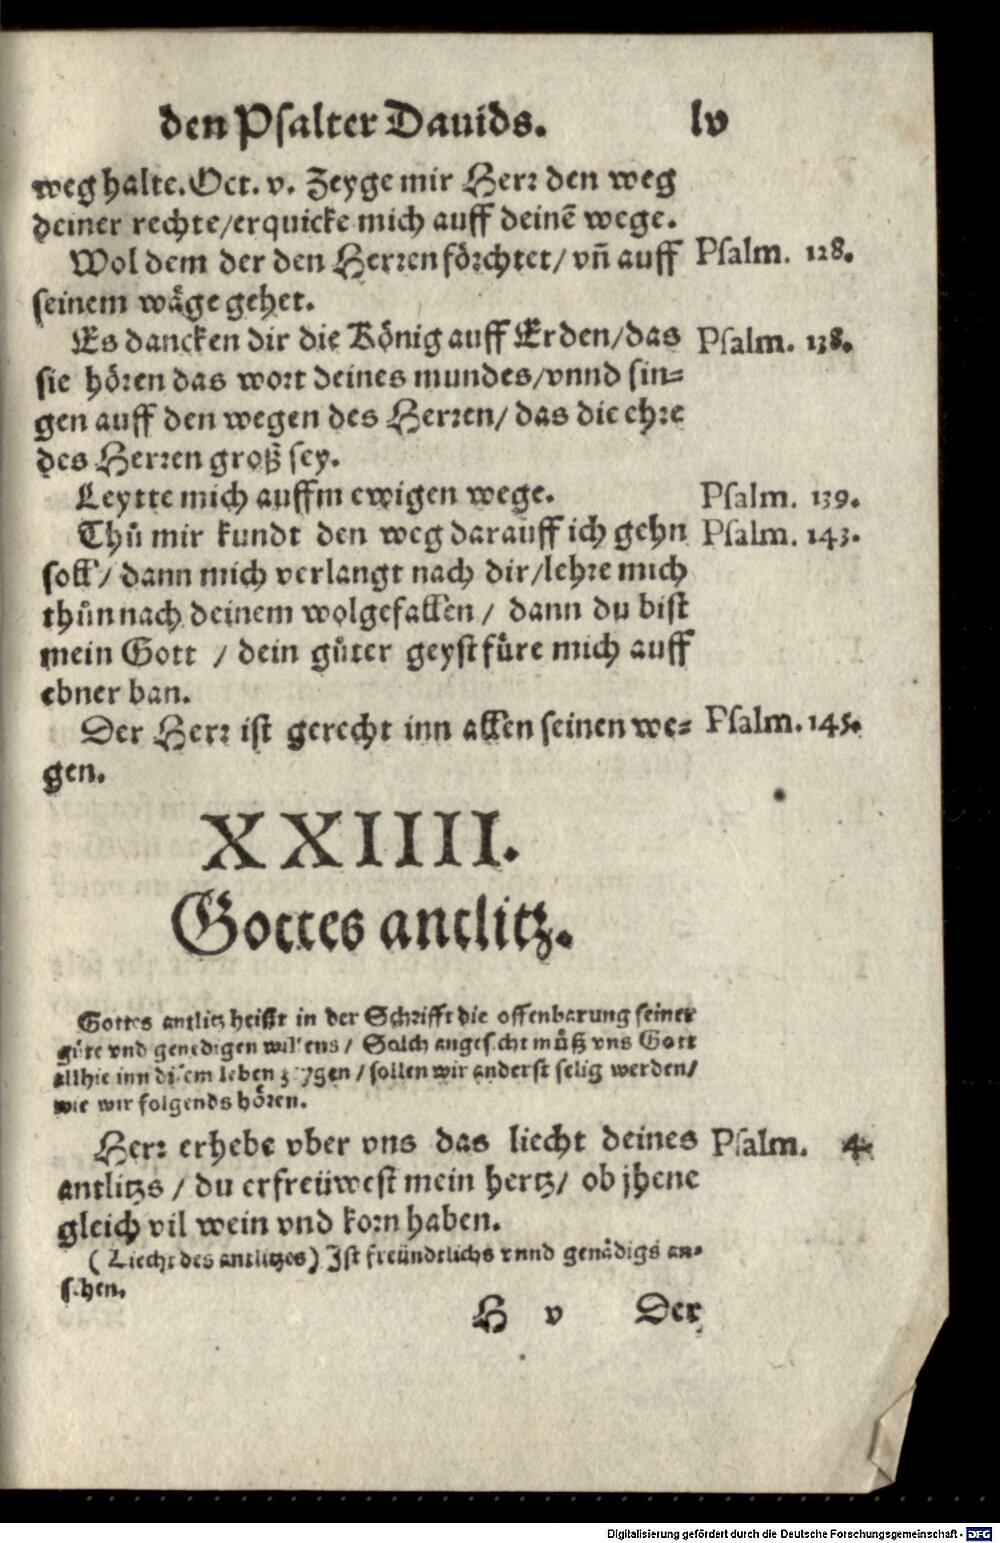 den Psalter Dauids. lv
weg halte. Oct. v. Zeyge mir Herr den weg
deiner rechte/erquicke mich auff deinē wege.
Wol dem der den Herren förchtet/ vñ auff Psalm. 128.
seinem wäge gehet.
Es dancken dir die König auff Erden/das Psalm. 138.
sie hören das wort deines mundes/vnnd sin=
gen auff den wegen des Herren/ das die ehre
des Herren groß sey.
Leytte mich auffm ewigen wege. Psalm. 139.
Thů mir kundt den weg darauff ich gehn Psalm. 143.
soll/ dann mich verlangt nach dir/lehre mich
thůn nach deinem wolgefallen/ dann du bist
mein Gott / dein gůter geyst füre mich auff
ebner ban.
Der Herr ist gerecht inn allen seinen we= Psalm. 145.
gen.
XXIIII.
Gottes antlitz.
Gottes antlitz heißt in der Schrifft die offenbarung seiner
güte vnd genedigen willens/ Solch angesicht můß vns Gott
allhie inn disem leben zeygen/ sollen wir anderst selig werden/
wie wir folgends hören.
Herr erhebe vber vns das liecht deines Psalm. 4.
antlitzs / du erfreüwest mein hertz/ ob jhene
gleich vil wein vnd korn haben.
(Liecht des antlitzes) Ist freündtlichs vnnd genädigs an=
sehen.
H v Der
Digitalisierung gefördert durch die Deutsche Forschungsgemeinschaft - DFG